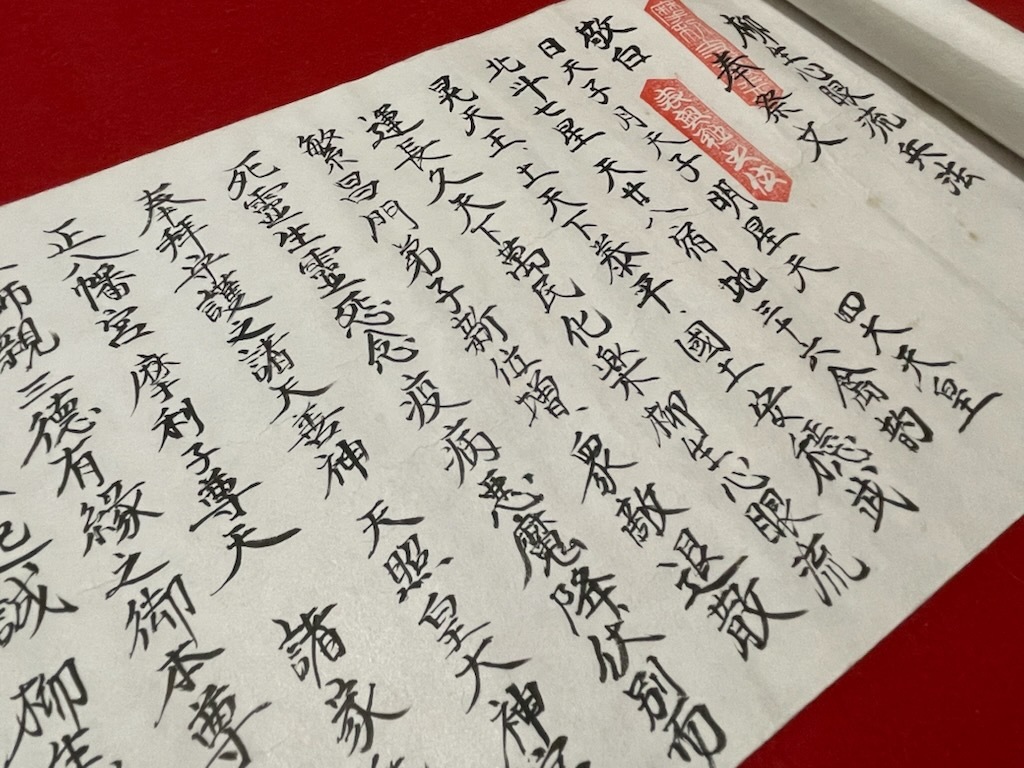 柳生心眼流兵法
奉祭文
敬白
日天子月天子明星天四大天皇
北斗七星天廿八宿地三十六禽
晃天王土天下泰平國土安穏武
運長久天下萬民化楽柳生心眼流
繁昌門弟子新位増衆敵退散
死霊生霊怨念疫病悪魔降伏別而
奉拝守護之諸天善神天照皇大神宮
正八幡宮摩利子尊天諸家
師親三徳有縁之御本尊
誠柳生